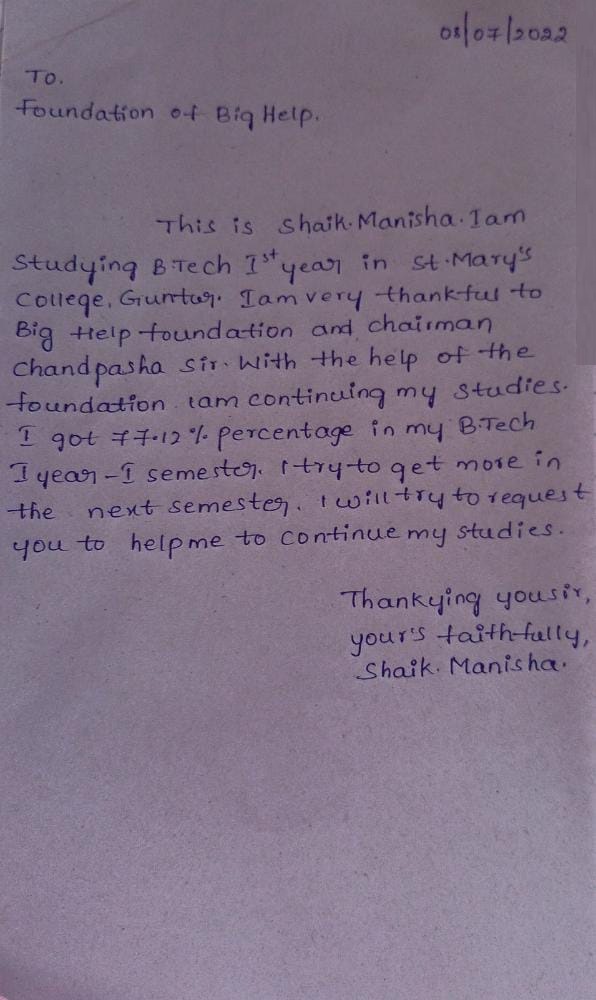 08/07/2022
To.
Foundation of Big Help.
This is Shaik.Manisha. I am
Studying B.Tech Ist year in St.Mary's
College, Guntur. I am very thankful to
Big Help foundation and chairman
Chandpasha Sir. With the help of the
foundation iam continuing my studies.
I got 77.12% percentage in my B.Tech
I year-I semester. I try to get more in
the next semester. I will try to request
you to help me to continue my studies.
Thankying you sir,
your's faithfully,
Shaik. Manisha.